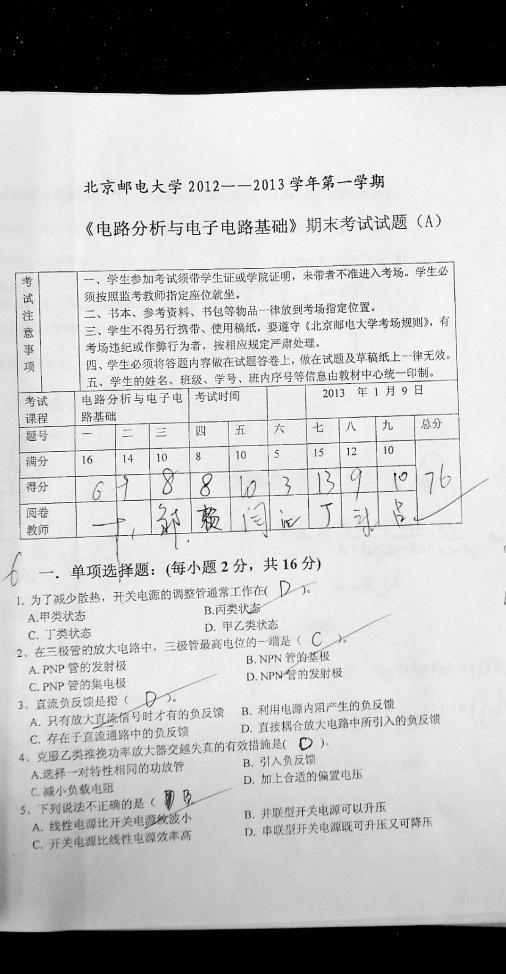 北京邮电大学2012——2013学年第一学期
《电路分析与电子电路基础》期末考试试题（A）
考试注意事项
一、学生参加考试须带学生证或学院证明，未带者不准进入考场。学生必
须按照监考教师指定座位就坐。
二、书本、参考资料、书包等物品一律放到考场指定位置。
三、学生不得另行携带、使用稿纸，要遵守《北京邮电大学考场规则》，有
考场违纪或作弊行为者，按相应规定严肃处理。
四、学生必须将答题内容做在试题答卷上，做在试题及草稿纸上一律无效。
五、学生的姓名、班级、学号、班内序号等信息由教材中心统一印制。
考试课程 电路分析与电子电路基础 考试时间 2013 年 1 月 9 日
题号 一 二 三 四 五 六 七 八 九 总分
满分 16 14 10 8 10 5 15 12 10
得分 6 9 8 8 10 3 13 9 10 76
阅卷教师
6 一．单项选择题：(每小题 2 分，共 16 分)
1. 为了减少散热，开关电源的调整管通常工作在( D )。
A.甲类状态 B.丙类状态
C. 丁类状态 D. 甲乙类状态
2、在三极管的放大电路中，三极管最高电位的一端是（ C ）。
A. PNP 管的发射极 B. NPN 管的基极
C. PNP 管的集电极 D. NPN 管的发射极
3、直流负反馈是指（ D ）。
A. 只有放大直流信号时才有的负反馈 B. 利用电源内阻产生的负反馈
C. 存在于直流通路中的负反馈 D. 直接耦合放大电路中所引入的负反馈
4、克服乙类推挽功率放大器交越失真的有效措施是( D )。
A.选择一对特性相同的功放管 B. 引入负反馈
C. 减小负载电阻 D. 加上合适的偏置电压
5、下列说法不正确的是（ B
A. 线性电源比开关电源纹波小 B. 并联型开关电源可以升压
C. 开关电源比线性电源效率高 D. 串联型开关电源既可升压又可降压